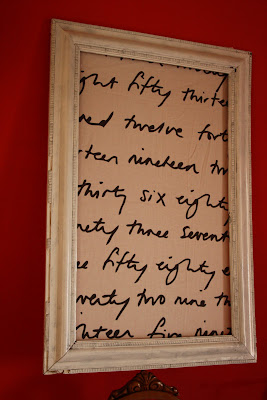 ght fifty thirte
red twelve fort
rteen nineteen tw
thirty six eighty
nety three sevent
ee fifty eighty e
venty two nine th
ghteen five ninet